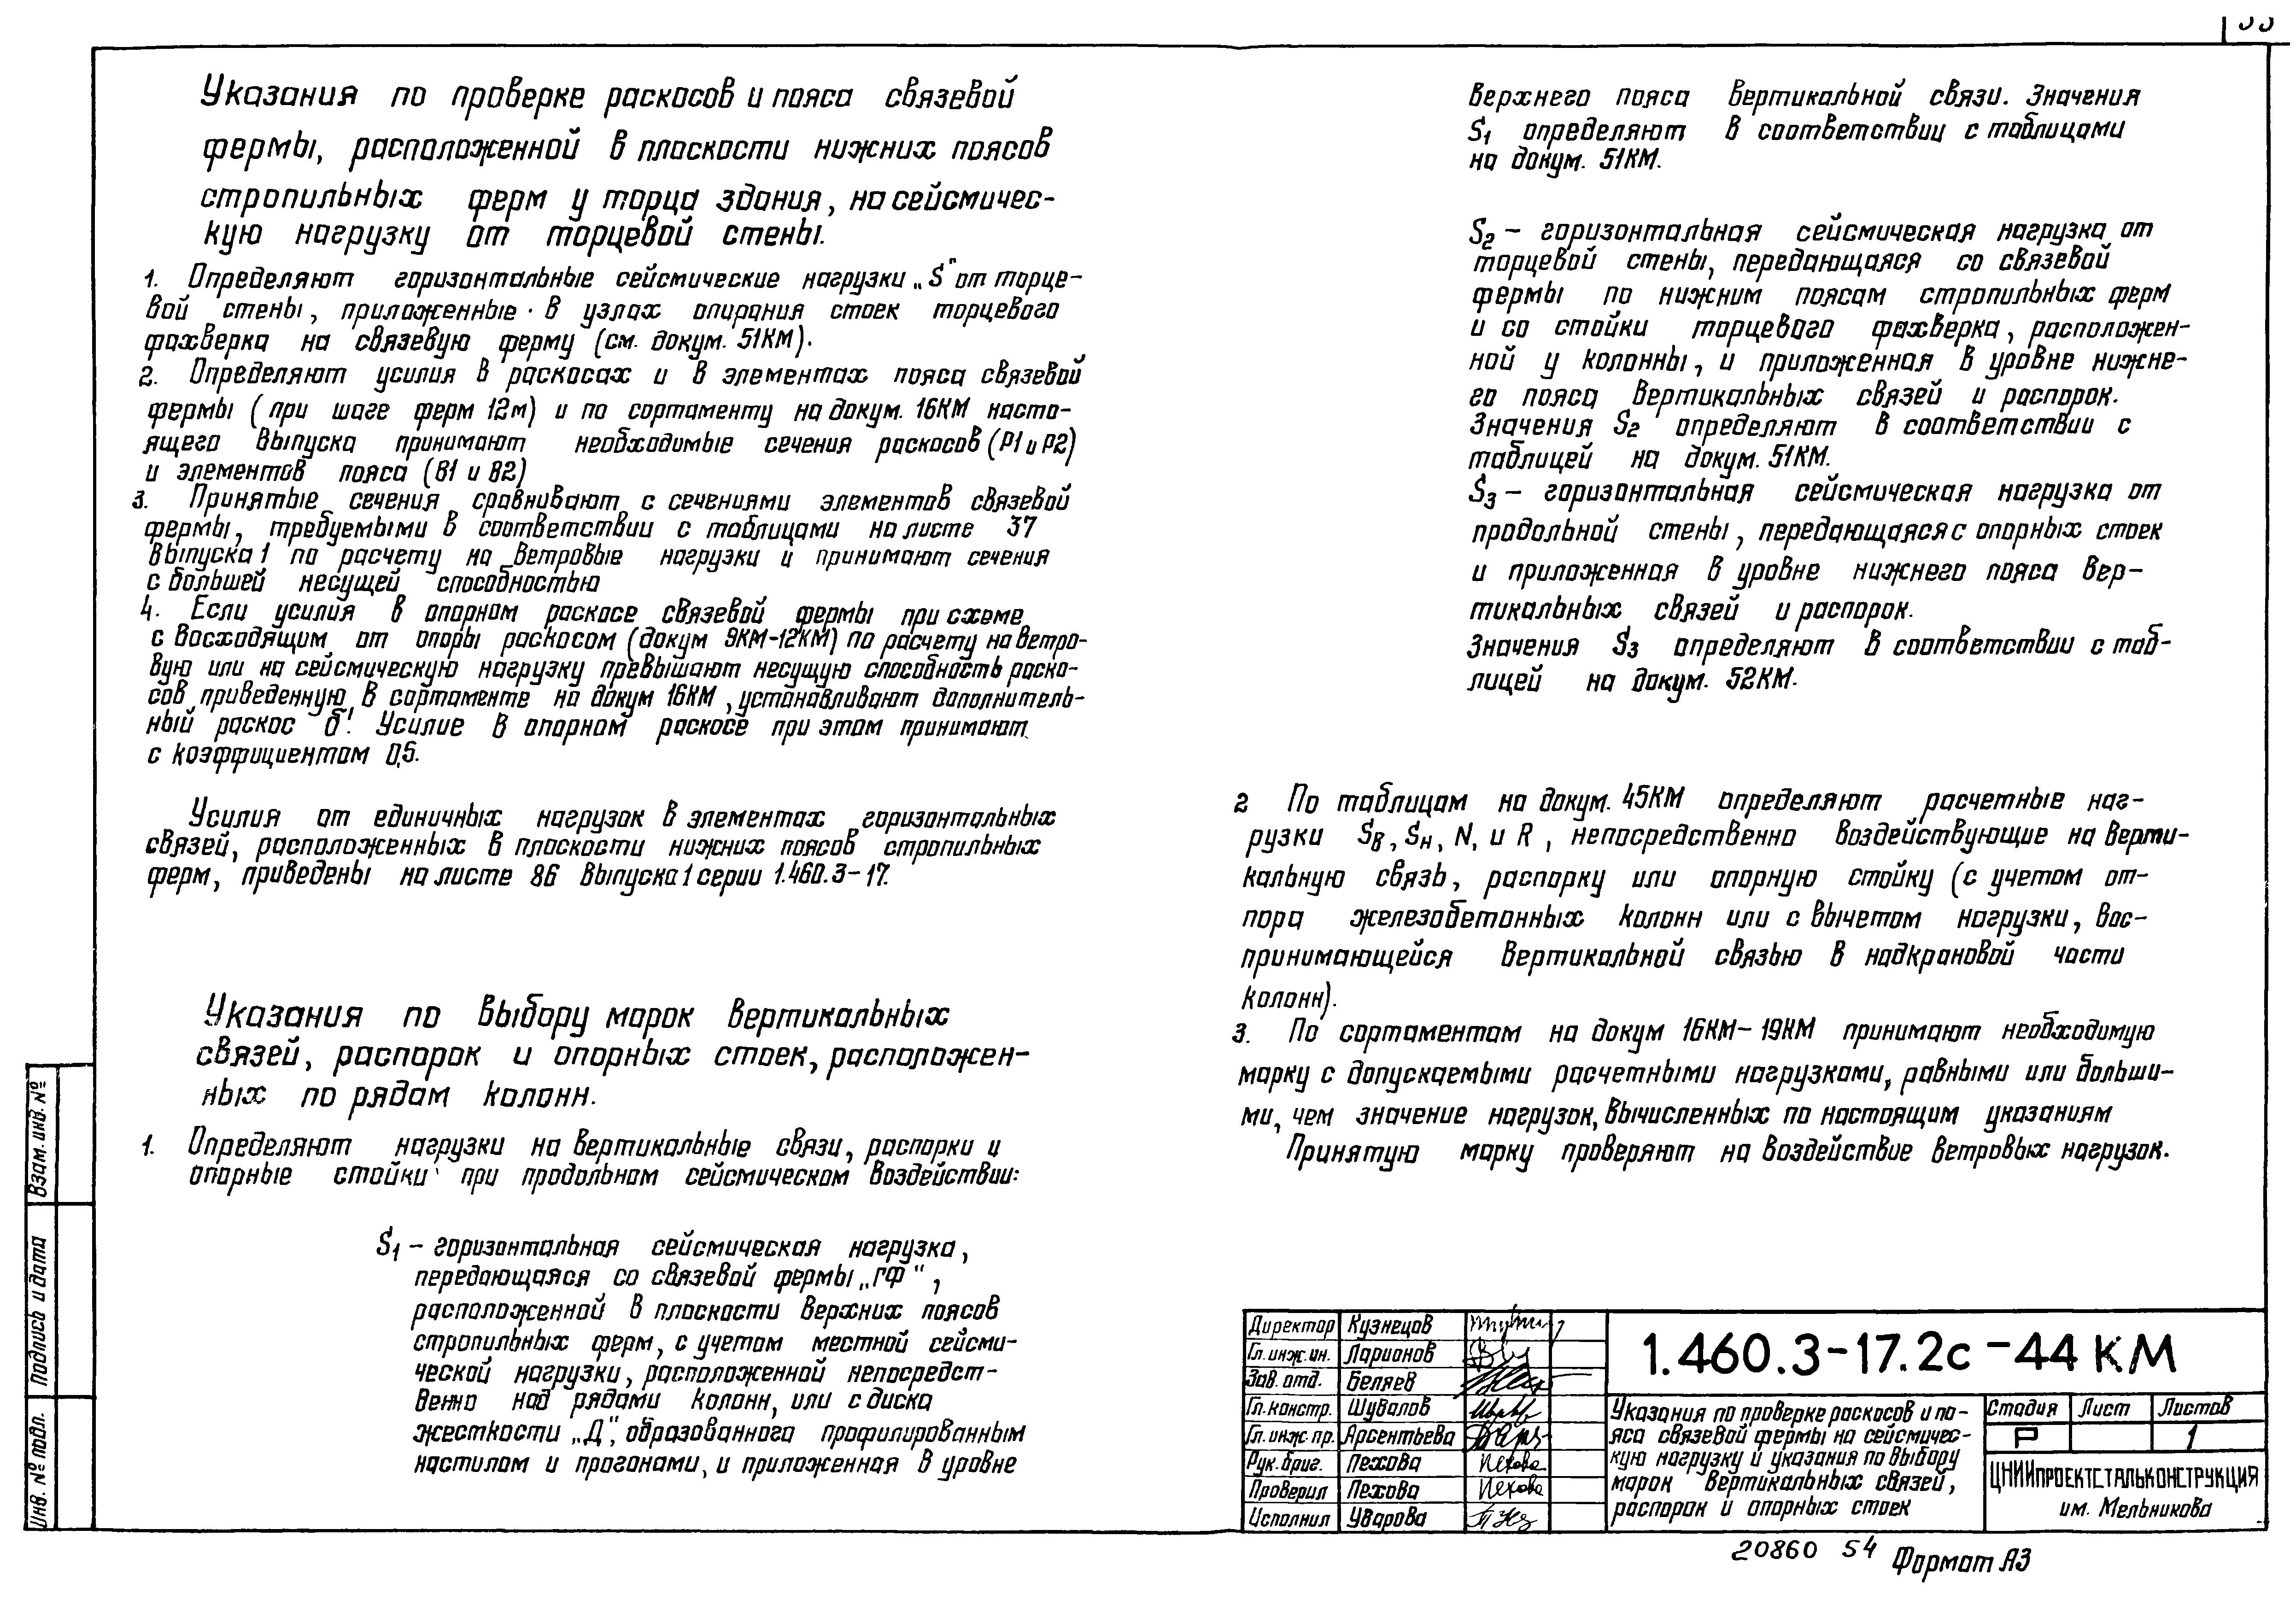 Указания по проверке раскосов и пояса связевой
фермы, расположенной в плоскости нижних поясов
стропильных ферм у торца здания, на сейсмичес-
кую нагрузку от торцевой стены.
1. Определяют горизонтальные сейсмические нагрузки „S" от торце-
вой стены, приложенные в узлах опирания стоек торцевого
фахверка на связевую ферму (см. докум. 51КМ).
2. Определяют усилия в раскосах и в элементах пояса связевой
фермы (при шаге ферм 12м) и по сортаменту на докум. 16КМ насто-
ящего выпуска принимают необходимые сечения раскосов (Р1 и Р2)
и элементов пояса (В1 и В2)
3. Принятые сечения сравнивают с сечениями элементов связевой
фермы, требуемыми в соответствии с таблицами на листе 37
выпуска 1 по расчету на ветровые нагрузки и принимают сечения
с большей несущей способностью
4. Если усилия в опорном раскосе связевой фермы при схеме
с восходящим от опоры раскосом (докум 9КМ-12КМ) по расчету на ветро-
вую или на сейсмическую нагрузку превышают несущую способность раско-
сов приведенную в сортаменте на докум 16КМ, устанавливают дополнитель-
ный раскос б'. Усилие в опорном раскосе при этом принимают
с коэффициентом 0,5.
Усилия от единичных нагрузок в элементах горизонтальных
связей, расположенных в плоскости нижних поясов стропильных
ферм, приведены на листе 86 выпуска 1 серии 1.460.3-17.
Указания по выбору марок вертикальных
связей, распорок и опорных стоек, расположен-
ных по рядам колонн.
1. Определяют нагрузки на вертикальные связи, распорки и
опорные стойки при продольном сейсмическом воздействии:
S1 – горизонтальная сейсмическая нагрузка,
передающаяся со связевой фермы „ГФ",
расположенной в плоскости верхних поясов
стропильных ферм, с учетом местной сейсми-
ческой нагрузки, расположенной непосредст-
венно над рядами колонн, или с диска
жесткости „Д", образованного профилированным
настилом и прогонами, и приложенная в уровне
верхнего пояса вертикальной связи. Значения
S1 определяют в соответствии с таблицами
на докум. 51КМ.
S2 – горизонтальная сейсмическая нагрузка от
торцевой стены, передающаяся со связевой
фермы по нижним поясам стропильных ферм
и со стойки торцевого фахверка, расположен-
ной у колонны, и приложенная в уровне нижне-
го пояса вертикальных связей и распорок.
Значения S2 определяют в соответствии с
таблицей на докум. 51КМ.
S3 – горизонтальная сейсмическая нагрузка от
продольной стены, передающаяся с опорных стоек
и приложенная в уровне нижнего пояса вер-
тикальных связей и распорок.
Значения S3 определяют в соответствии с таб-
лицей на докум. 52КМ.
2 По таблицам на докум. 45КМ определяют расчетные наг-
рузки SВ, SН, N, и R, непосредственно воздействующие на верти-
кальную связь, распорку или опорную стойку (с учетом от-
пора железобетонных колонн или с вычетом нагрузки, вос-
принимающейся вертикальной связью в надкрановой части
колонн).
3. По сортаментам на докум 16КМ-19КМ принимают необходимую
марку с допускаемыми расчетными нагрузками, равными или больши-
ми, чем значение нагрузок, вычисленных по настоящим указаниям
Принятую марку проверяют на воздействие ветровых нагрузок.
Взам. инв. №
Подпись и дата
Инв. № подл.
Директор Кузнецов
Гл. инж. ин. Ларионов
Зав. отд. Беляев
Гл. констр. Шувалов
Гл. инж. пр. Арсентьева
Рук. бриг. Пехова Пехова
Проверил Пехова Пехова
Исполнил Уварова
1.460.3-17.2с-44КМ
Указания по проверке раскосов и по-
яса связевой фермы на сейсмичес-
кую нагрузку и указания по выбору
марок вертикальных связей,
распорок и опорных стоек
Стадия Лист Листов
Р 1
ЦНИИПРОЕКТСТАЛЬКОНСТРУКЦИЯ
им. Мельникова
20860 54 Формат А3